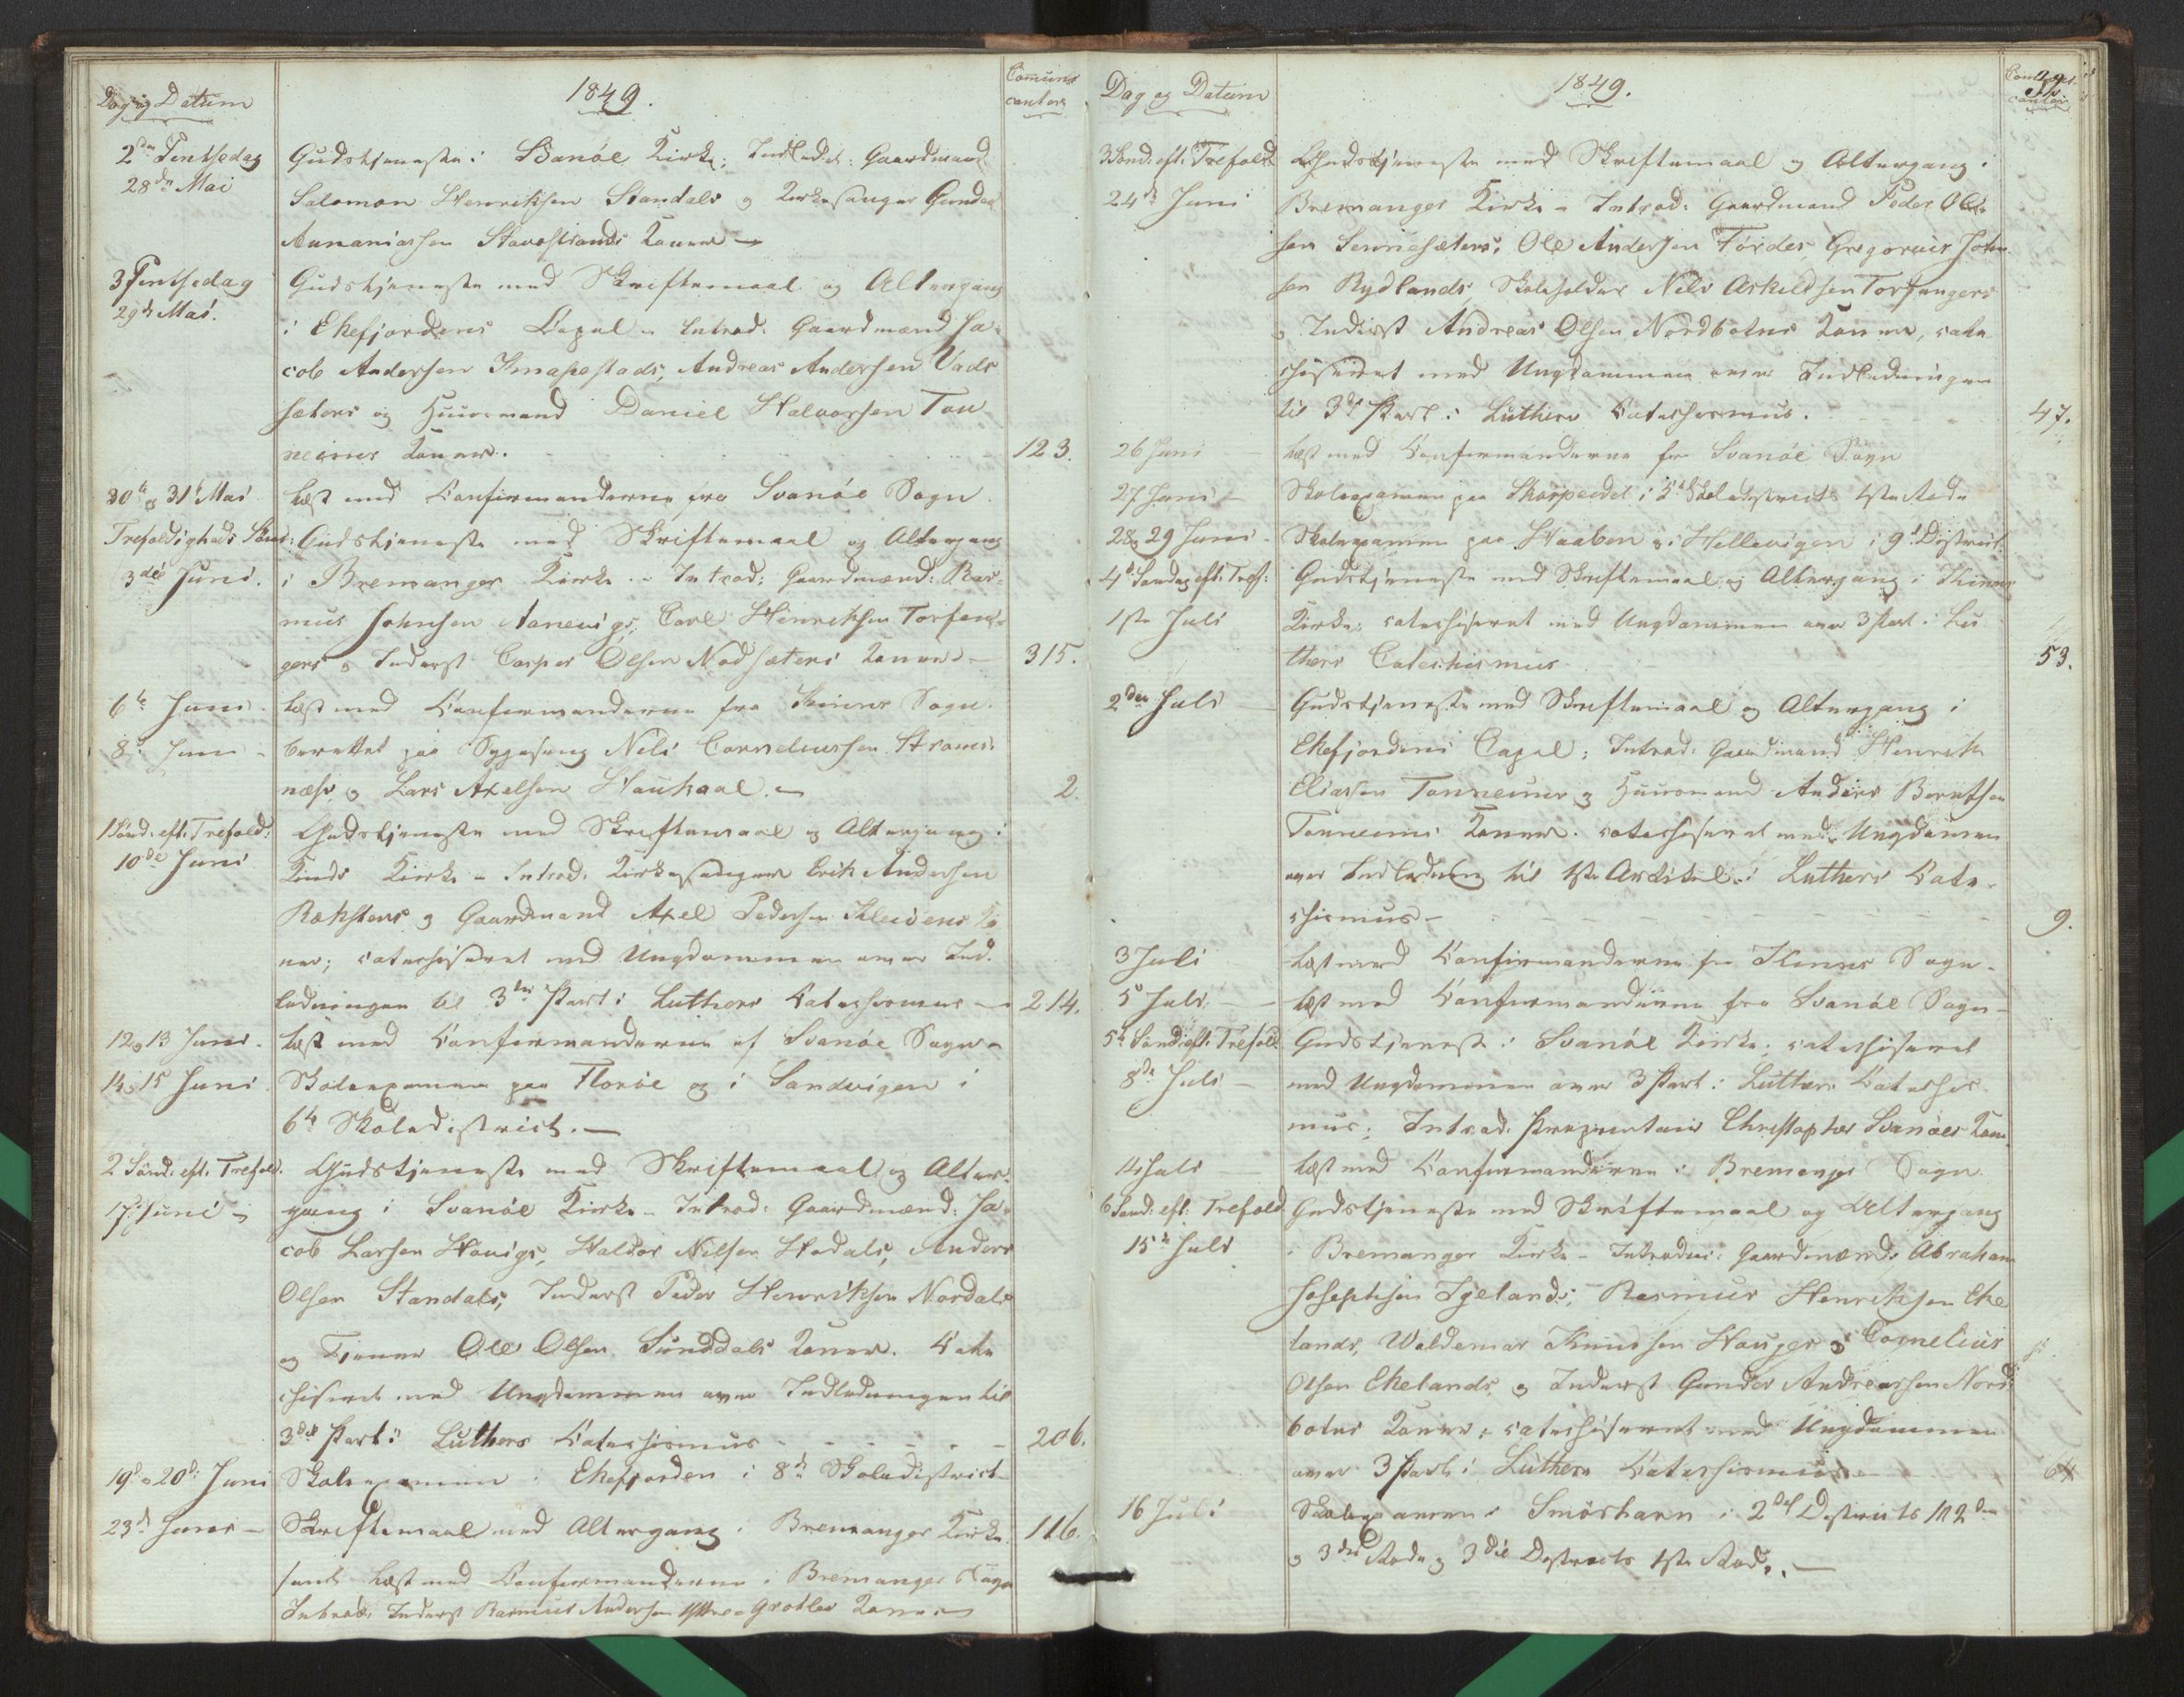 Dag og Datum
1849.
Communicantere
2den Pentsedag Gudstjeneste i Svanöe Kirke; Indledet: Gaardmand
28de Mai Salomon Henriksen Standals og Kirkesanger Gunder
Annaniassen Stavestrands Koner
3 Pentsedag Gudstjeneste med Skriftemaal og Altergang
29de Mai. i Ekefjordens Capel – Introd: Gaardmænd Ja-
cob Andersen Knapestads, Andreas Andersen Vads
sæters og Huusmand Daniel Halvorsen Ton
neimes Koner. 123.
30te og 31te Mai læst med Confirmanderne fra Svanöe Sogn
Trefoldigheds Sönd: Gudstjeneste med Skriftemaal og Altergang
3die Juni. i Bremanger Kirke. – Introd: Gaardmænd: Ras-
mus Johnsen Aanevigs, Carl Henriksen Torfan-
gers og Inderst Casper Olsen Nodsæters Koner – 315.
6te Juni – læst med Confirmanderne fra Kinns Sogn.
8de Juni – berettet paa Sygeseng Nils Corneliussen Strøms
næs og Lars Axelsen Haukaal. – 2.
1 Sönd. eft. Trefold: Gudstjeneste med Skriftemaal og Altergang i
10de Juni Kinds Kirke – Introd. Kirkesanger Erik Andersen
Rækstens og Gaardmand Axel Pedersen Kleivens Ko
ner; catechiseret med Ungdommen over Ind-
ledningen til 3die Part i Luthers Catechismus – 214.
12 og 13 Juni – læst med Confirmanderne af Svanöe Sogn –
14 og 15 Juni. Skoleexamen paa Floröe og i Sandvigen i
6te Skoledistrict. –
2 Sönd. eft. Trefold. Gudstjeneste med Skriftemaal og Alter-
17 Juni – gang i Svanöe Kirke – Introd: Gaardmænd: Ja-
cob Larsen Hovigs, Haldor Nilsen Hodals, Anders
Olsen Standals, Inderst Peder Henriksen Nordals
og Tjener Ole Olsen Sunddals Koner. Cate
chiseret med Ungdommen over Indledningen til
3die Part i Luthers Catechismus – – – – – 206.
19de og 20de Juni Skoleexamen i Ekefjorden i 8de Skoledistrict
23de Juni – Skriftemaal med Altergang i Bremanger Kirke 116.
samt læst med Confirmanderne i Bremanger Sogn
Introd. Inderst Rasmus Andersen Grotles Kone
Dag og Datum
1849.
3 Sönd. eft. Trefold Gudstjeneste med Skriftemaal og Altergang i
24de Juni Bremanger Kirke – Introd: Gaardmand Peder Ol-
sen Senniesæters, Ole Andersen Fördes, Gregorius John
sen Rydlands, Skoleholder Nils Askildsen Torfangers
og Inderst Andreas Olsen Nordbotns Koner, cate
chiseret med Ungdommen over Indledningen
til 3die Part i Luthers Catechismus. 47.
26 Juni læst med Confirmanderne fra Svanöe Sogn
27 Juni – Skoleexamen paa Skorpeidet i 5te Skoledistricts 1ste Rode
28 og 29 Juni – Skoleexamen paa Haaben og i Hellevigen i 9de District.
4de Söndag eft. Tref: Gudstjeneste med Skriftemaal og Altergang i Kinns
1ste Juli Kirke; catechiseret med Ungdommen over 3 Part i Lu
thers Catechismus – 53.
2den Juli – Gudstjeneste med Skriftemaal og Altergang i
Ekefjordens Capel; Introd: Gaardmand Henrik
Eliassen Tonneimes og Huusmand Anders Berntsen
Tonneims Koner. catechiseret med Ungdommen
over Indledning til 1ste Artikel i Luthers Cate-
chismus – – – – – – – – 9.
3 Juli læst med Confirmanderne fra Kinns Sogn –
5te Juli – læst med Confirmanderne fra Svanöe Sogn –
5te Sönd. eft. Trefold. Gudstjeneste i Svanöe Kirke, catechiseret
8de Juli – med Ungdommen over 3 Part i Luthers Catechis-
mus; Introd. Proprietair Christopher Svanöes Kone.
14 Juli læst med Confirmanderne i Bremanger Sogn
6 Sönd. eft. Trefold. Gudstjeneste med Skriftemaal og Altergang
15de Juli i Bremanger Kirke – Introduc: Gaardmænd: Abraham
Josephsen Igelands, Rasmus Henriksen Eke
lands, Waldemar Knudsen Hauges og Cornelius
Olsen Ekelands, og Inderst Gunder Andreassen Nord-
botns Koner, catechiseret med Ungdommen
over 3 Part i Luthers Catechismus – 64
16 Juli Skoleexamen i Smörhavn i 2det Districts 1 2den
og 3die Rode og 3die Districts 1ste Rode. –